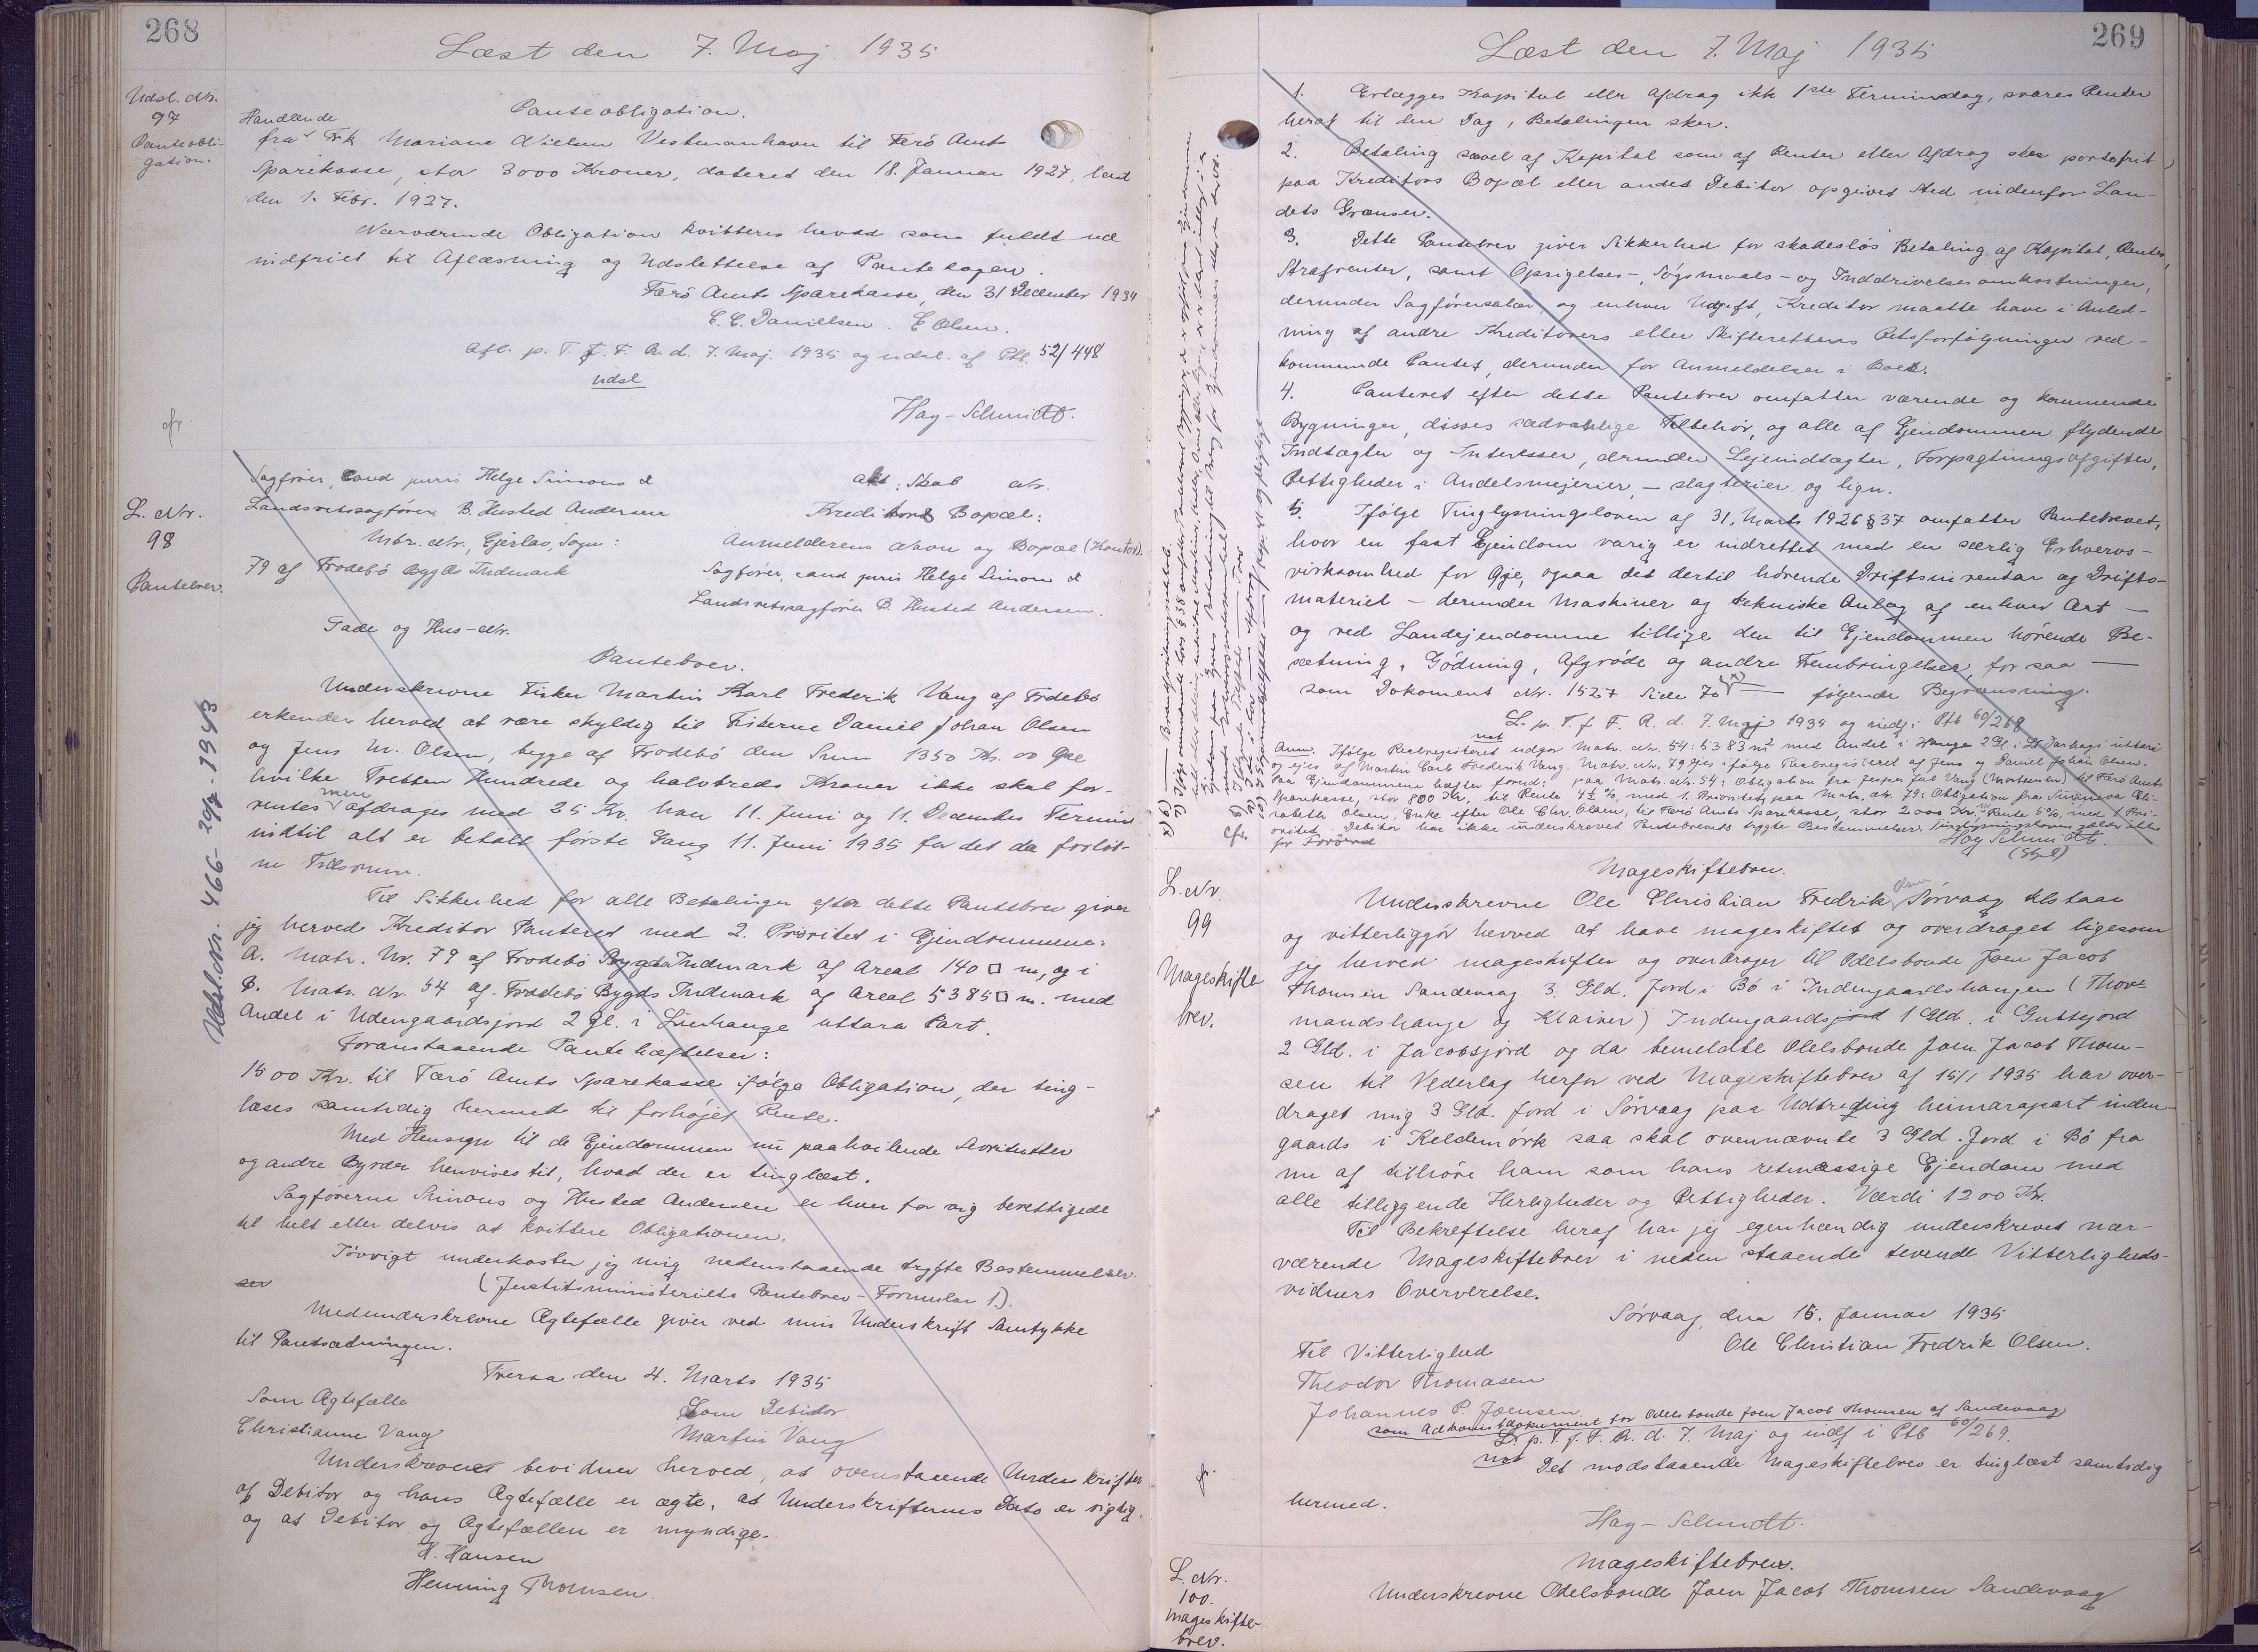 268
Læst den 7. Maj 1935
Udsl. Nr.
97
Panteobli-
gation.
Panteobligation.
Handlende
fra Frk Mariane Nielsen Vestmanhavn til Færö Amts
Sparekasse, stor 3000 Kroner, dateret den 18. Januar 1927, læst
den 1. Febr. 1927.
Nærværende Obligation kvitteres herved som fuldt ud
indfriet til Aflæsning og Udslettelse af Pantebogen.
Færö Amts Sparekasse, den 31 December 1934
C. C. Danielsen. E Olsen.
Afl. p. T. f. F. R. d. 7. Maj. 1935 og udsl. af Ptb. 52/448
udsl
Hay-Schmidt.
cfr.
L. Nr.
98
Pantebrev.
Sagförer, cand juris Helge Simons &
Landsretssagförer B. Husted Andersen
Akt: Skab Nr.
Kreditors Bopæl:
Mtr. Nr., Ejerlav, Sogn:
79 af Frodebö Bygds Indmark
Anmelderens Navn og Bopæl (Kontor).
Sagförer, cand juris Helge Simons &
Landsretssagförer B. Husted Andersen.
Gade og Hus-Nr.
Pantebrev.
Underskrevne Fisker Martin Karl Frederik Vang af Frodebö
erkender herved at være skyldig til Fiskerne Daniel Johan Olsen
og Jens M. Olsen, begge af Frodebö den Sum 1350 Kr. 00 Øre
hvilke Tretten Hundrede og halvtreds Kroner ikke skal for-
rentes men afdrages med 25 Kr. hver 11. Juni og 11. December Termin
indtil alt er betalt förste Gang 11. Juni 1935 for det da forlöb-
ne Tidsrum.
Til Sikkerhed for alle Betalinger efter dette Pantebrev giver
jeg herved Kreditor Panteret med 2. Prioritet i Ejendommene:
A. Matr. Nr. 79 af Frodebö Bygds Indmark af Areal 140 □ m, og i
B. Matr. Nr. 54 af Frodebö Bygds Indmark af Areal 5385 □ m. med
Andel i Udengaardsjord 2 Gl. i Lierhauge uttara Part.
Foranstaaende Pantehæftelser:
1500 Kr. til Færö Amts Sparekasse ifölge Obligation, der ting-
læses samtidig hermed til forhöjet Rente.
Med Hensyn til de Ejendommen nu paahvilende Servitutter
og andre Byrder henvises til, hvad der er tinglæst.
Sagförerne Simons og Husted Andersen er hver for sig berettigede
til helt eller delvis at kvittere Obligationen.
Iövrigt underkaster jeg mig nedenstaaende trygte Bestemmelser.
ser (Justitsministeriets Pantebrev-Formular 1.).
Medunderskrevne Ægtefælle giver ved min Underskrift Samtykke
til Pantsætningen.
Tveraa den 4. Marts 1935
Som Ægtefælle
Christianne Vang
Som Debitor
Martin Vang
Underskrevne bevidner herved, at ovenstaaende Underskrifter
af Debitor og hans Ægtefælle er ægte, at Underskrifternes Dato er rigtig,
og at Debitor og Ægtefællen er myndige.
H. Hansen
Henning Thomsen.
Udsl. Nr. 466-29/7-1943
269
Læst den 7. Maj 1935
1. Erlægges Kapital eller Afdrag ikk 1ste Termindag, svares Renter
heraf til den Dag, Betalingen sker.
2. Betaling saavel af Kapital som af Renter eller Afdrag sker portofrit
paa Kreditors Bopæl eller andet Debitor opgivet Sted indenfor Lan-
dets Grænser.
3. Dette Pantebrev giver Sikkerhed for skadeslös Betaling af Kapital, Renter,
Strafrenter, samt Opsigelses-, Sögsmaals- og Inddrivelsesomkostninger,
derunder Sagförersalær og enhver Udgift, Kreditor maatte have i Anled-
ning af andre Kreditorers eller Skifterettens Retsforfölgninger ved-
kommende Pantet, derunder for Anmeldelser i Boer.
4. Panteret efter dette Pantebrev omfatter værende og kommende
Bygninger, disses sædvanlige Tilbehör, og alle af Ejendommen flydende
Indtægter og Interesser, derunder Lejeindtægter, Forpagtningsafgifter,
Rettigheder i Andelsmejerier, -slagterier og lign.
5. Ifölge Tinglysningsloven af 31. Marts 1926 § 37 omfatter Pantebrevet,
hvor en fast Ejendom varig er indrettet med en særlig Erhvervs-
virksomhed for Øje, ogsaa det dertil hörende Driftsinventar og Drifts-
materiel - derunder Maskiner og tekniske Anlæg af enhver Art -
og ved Landejendomme tillige den til Ejendommen hörende Be-
sætning, Gödning, Afgröde og andre Frembringelser, for saa -
som Dokoment Nr. 1527 Side 70 x) - følgende Begrænsning.
L. p. T. f. F. R. d. 7. Maj 1934 og indf i Ptb 60/268
not
Anm. Ifölge Realregisteret udgör Matr. Nr. 54: 5383 m² med Andel i
og ejes af Martin Carl Frederik Vang. Matr. Nr. 79 ejes ifölge Realregisteret af Jens og Daniel Johan Olsen.
Paa Ejendommene hæfter forud: paa Matr. Nr. 54: Obligation fra Jesper Jak Vang (Mortensen) til Færö Amts
Sparekasse, stor 800 Kr, til Rente 4½ %, med 1. Prioritet; paa Matr. Nr. 79: Obligation fra Sunneva Eli-
sabeth Olsen, Enke efter Ole Chr. Olsen, til Færö Amts Sparekasse, stor 2000 Kr. til Rente 5%, med 1 Pri-
oritet. Debitor har ikke underskrevet Pantebrevets trygte Bestemmelser. Tinglysningsloven gælder ikke
for Færöerne
Hay Schmidt.
cfr.
L. Nr.
99
Mageskifte
brev.
Mageskiftebrev.
Underskrevne Ole Christian Fredrik Olsen Sörvaag tilstaar
og vitterliggör herved at have mageskiftet og overdraget ligesom
jeg herved mageskifter og overdrager til Odelsbonde Joen Jacob
Thomsen Sandevaag 3. Gld. Jord i Bö i Indengaardshaugen (Thor-
mandshauge og Klaiver) Indengaardsjord 1 Gld. i Guttejord
2 Gld. i Jacobsjord og da bemeldte Odelsbonde Joen Jacob Thom-
sen til Vederlag herfor ved Mageskiftebrev af 15/1 1935 har over-
draget mig 3 Gld. Jord i Sörvaag paa Udtreding heimarapart inden-
gaards i Keldemörk saa skal ovennævnte 3 Gld. Jord i Bö fra
nu af tilhöre ham som hans retmæssige Ejendom med
alle tilliggende Herligheder og Rettigheder. Værdi 1200 Kr.
Til Bekreftelse heraf har jeg egenhændig underskrevet nær-
værende Mageskiftebrev i neden staaende tevende Vitterligheds-
vidners Oververelse.
Sörvaag, den 15. Januar 1935
Ole Christian Fredrik Olsen.
Til Vitterlighed
Theodor Thomasen
Johannes P. Joensen
som Adkomstdokument for Odelsbonde Joen Jacob Thomsen af Sandevaag
L. p. T. f. F. R. d. 7. Maj og indf i Ptb 60/269.
not Det modstaaende Mageskiftebrev er tinglæst samtidig
hermed.
Hay-Schmidt.
L. Nr.
100.
Mageskifte-
brev.
Mageskiftebrev.
Underskrevne Odelsbonde Joen Jacob Thomsen Sandevaag